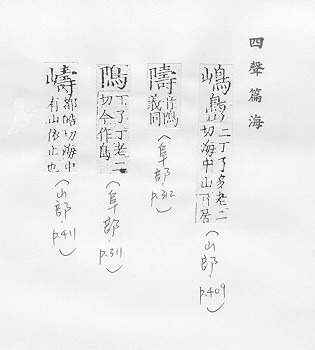 四聲篇海
嶋 二丁了多老二
切海中山可居
(山部 p.409)
音隝
義同
(阜部 p.312)
隝 丁了丁老二
切今作島
(阜部 p.311)
嶹 都皓切海中
有山依止也
(山部 p.411)